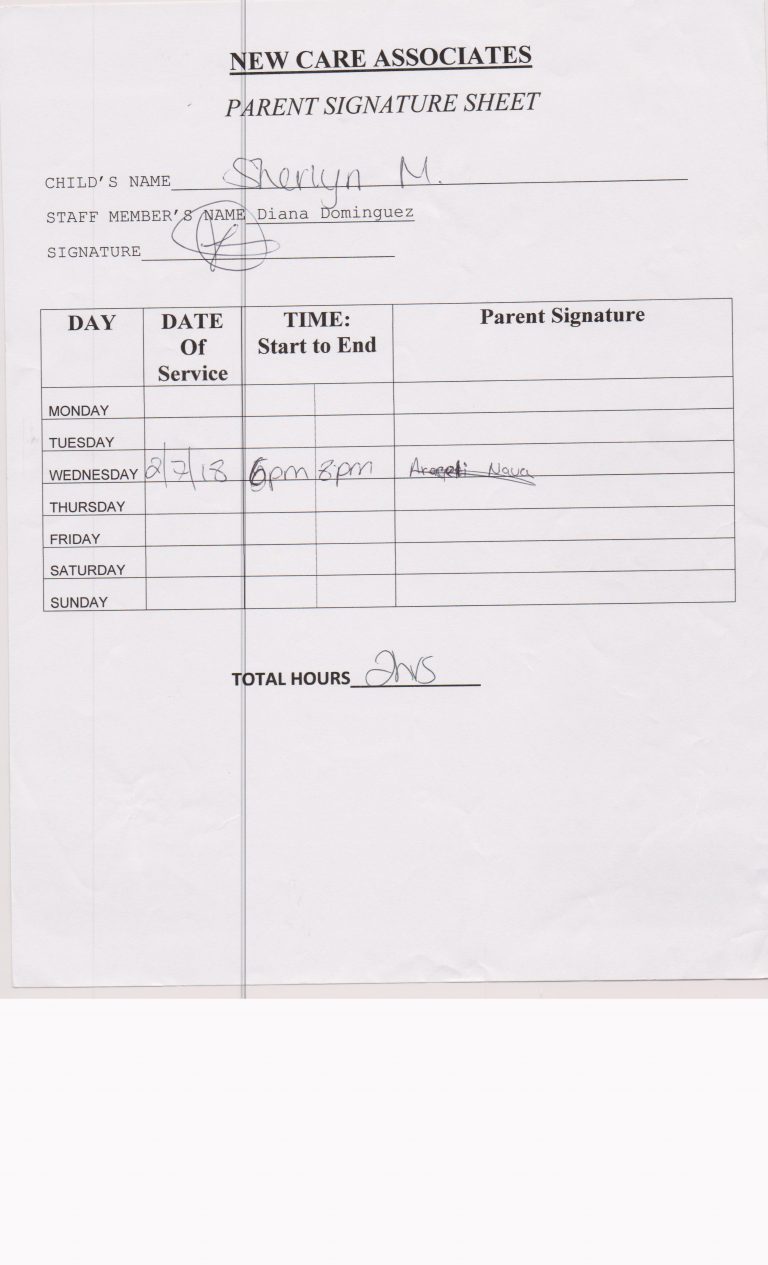 NEW CARE ASSOCIATES
PARENT SIGNATURE SHEET
CHILD'S NAME Sherlyn M.
STAFF MEMBER'S NAME Diana Dominguez
SIGNATURE
DAY DATE Of Service TIME: Start to End Parent Signature
MONDAY
TUESDAY
WEDNESDAY 2/7/18 6pm 8pm Araceli Nava
THURSDAY
FRIDAY
SATURDAY
SUNDAY
TOTAL HOURS 2hrs